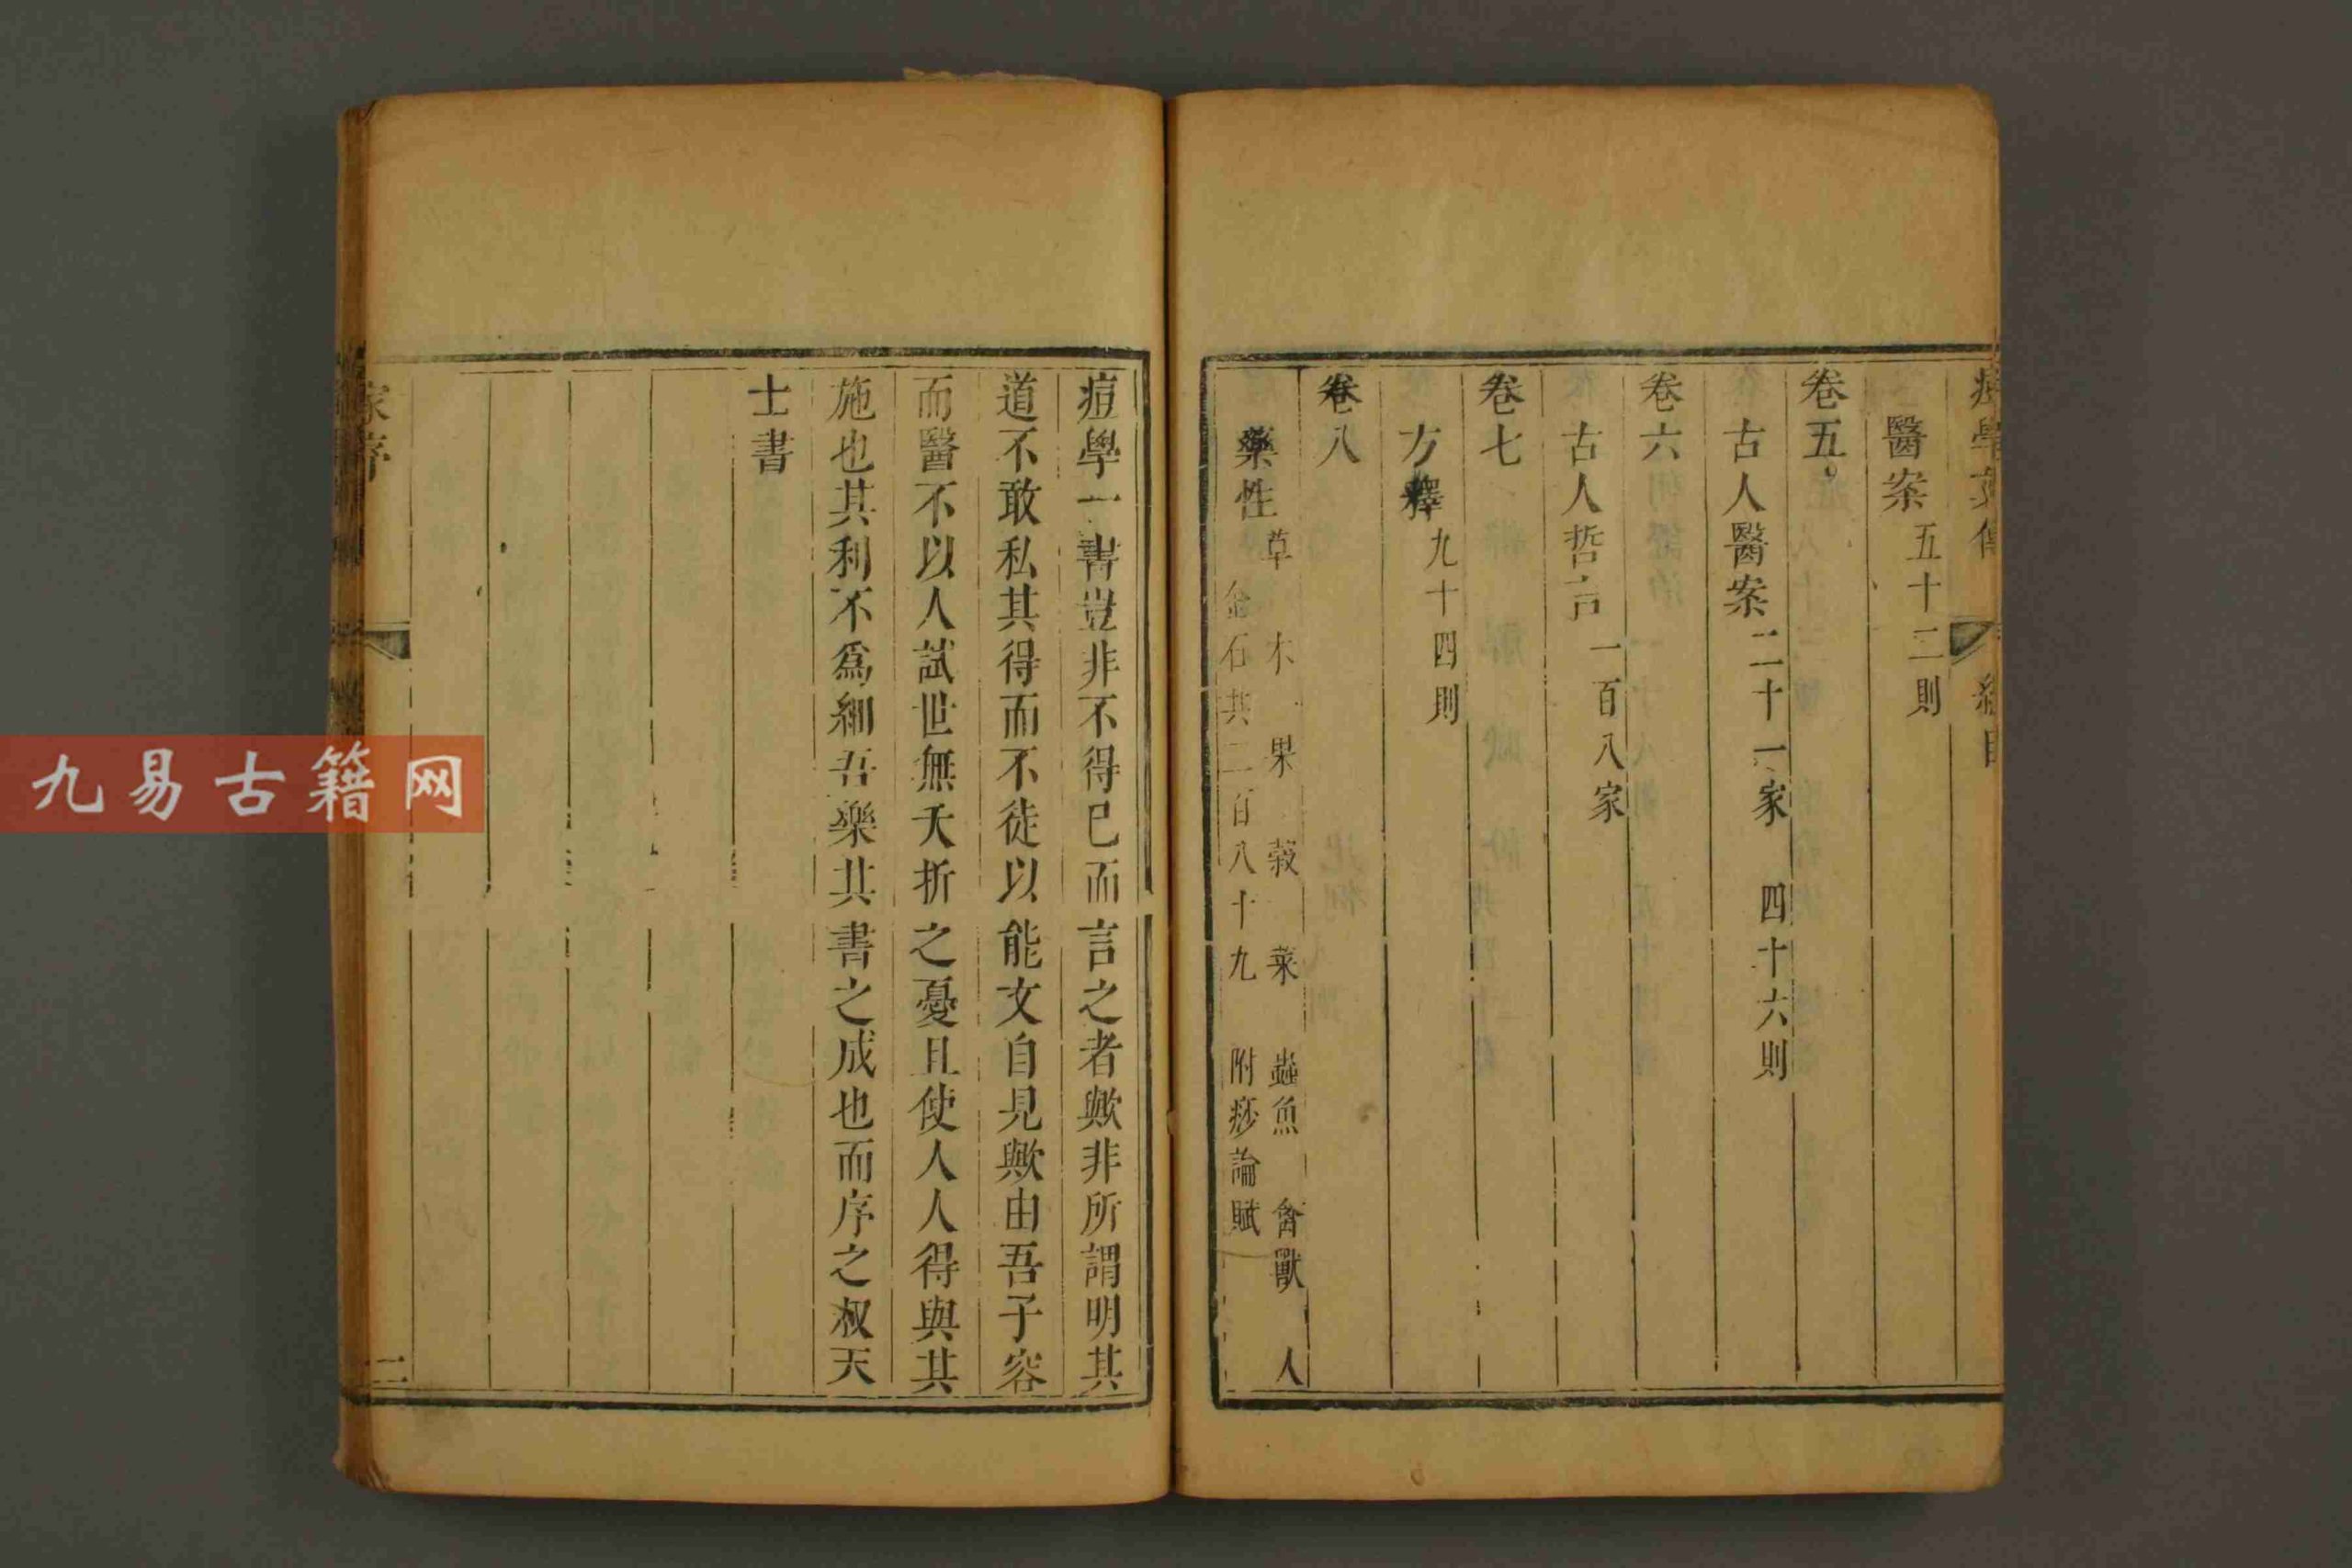 醫案五十二則
卷五
古人醫案二十一家 四十六則
卷六
古人哲言一百八家
卷七
方釋九十四則
卷八
藥性草 木 果 穀 菜 蟲魚 禽獸 人
金石共二百八十九 附痧論賦
痘學一書豈非不得已而言之者歟非所謂明其
道不敢私其得而不徒以能文自見歟由吾子容
而醫不以人試世無夭折之憂且使人人得與其
施也其利不為細吾樂其書之成也而序之叔天
士書
家序
二
九易古籍网